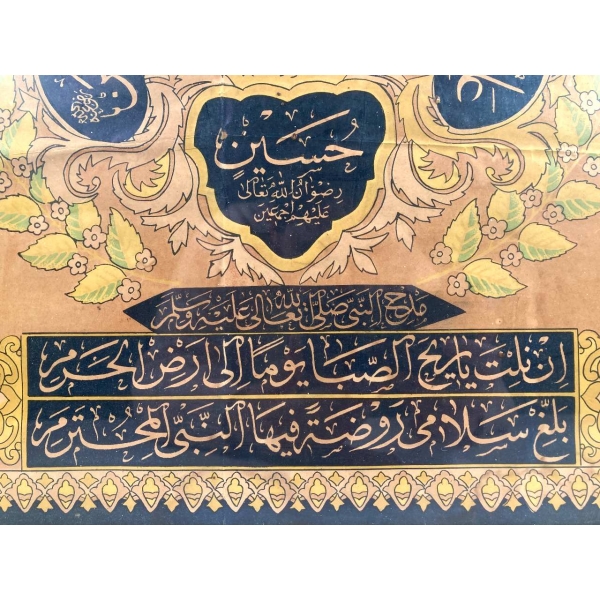 حُسَيْن
رضوان الله تعالى
عليهم اجمعين
مدح النبي صلى الله تعالى عليه وسلم
اِن نلت يا ريح الصبا يوماً الى ارض الحرم
بلغ سلامي روضةً فيها النبي المحترم